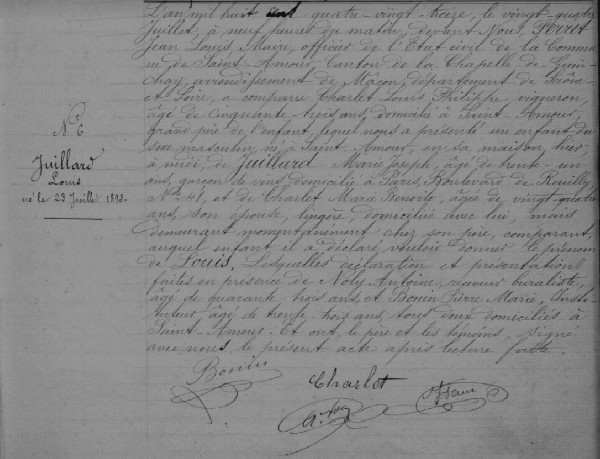 L'an mil huit cent quatre-vingt-treize, le vingt-quatre
Juillet, à neuf heures du matin, devant Nous, Perret
Jean Louis, Maire, officier de l'Etat civil de la Commu
ne de Saint-Amour, Canton de la Chapelle de Guin-
chay, arrondissement de Mâcon, département de Saône-
et Loire, a comparu Charlet Louis Philippe, vigneron,
âgé de Cinquante-trois ans, domicilié à Saint-Amour,
grand père de l'enfant, lequel nous a présenté un enfant du
sexe masculin, né à Saint-Amour, en sa maison, hier,
à midi, de Juillard Marie Joseph, âgé de trente-un
ans, garçon de vins domicilié à Paris, Boulevard de Reuilly
N° 41, et de Charlet Marie Benoite, agée de vingt-quatre
ans, son épouse, lingère domiciliée avec lui, mais
demeurant momentanément chez son père, comparant,
auquel enfant il a déclaré vouloir donner le prénom
de Louis. Lesquelles déclaration et présentation
faites en présence de Noly Antoine, receveur buraliste,
âgé de quarante-trois ans, et Bonin Pierre Marie, Insti-
tuteur âgé de trente-trois ans, tous deux domiciliés à
Saint-Amour. Et ont, le père et les témoins, signé
avec nous le présent acte après lecture faite.
Juillard
Louis
né le 23 Juillet 1893.
Bonin
Charlet